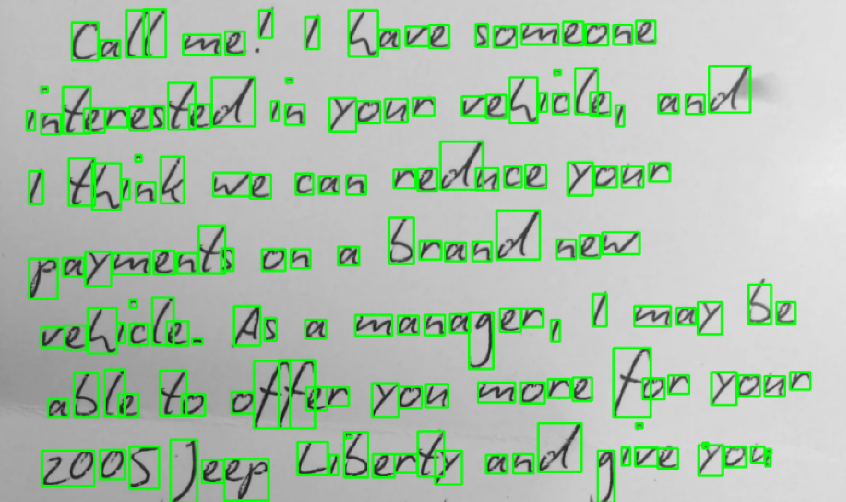 Call me! I have someone
interested in your vehicle, and
I think we can reduce your
payments on a brand new
vehicle. As a manager, I may be
able to offer you more for your
2005 Jeep Liberty and give you